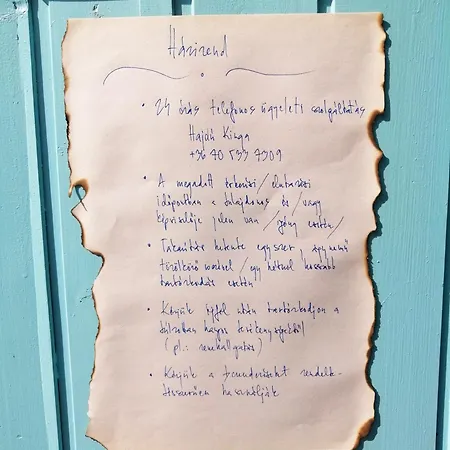 Házirend
• 24 órás telefonos ügyeleti szolgáltatás
Hajdú Kinga
+36 70 533 7309
• A megadott érkezési / elutazási
időpontban a tulajdonos és / vagy
képviselője jelen van / igény esetén /
• Takarítás hetente egyszer, ágynemű
törölköző cserével / egy hétnél hosszabb
tartózkodás esetén
• Kérjük éjfél után tartózkodjon a
túlzottan hangos tevékenységektől
(pl.: zenehallgatás)
• Kérjük a rendelt-
tésszerűen használják